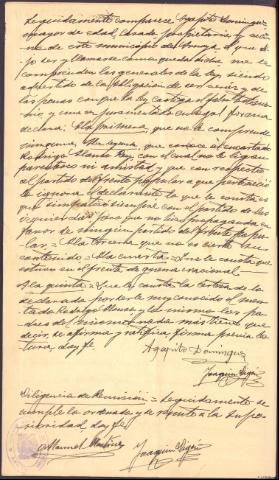 Seguidamente comparece Agapito Dominguez
mayor de edad, casado propietario y vecino
de este municipio de
y llamarse como queda dicho, no le
comprenden las generales de la ley siendo
advertido de la obligación de ser veraz y de
las penas con que la ley castiga el falso testimo-
nio y con su juramento en legal forma
declara: A la primera que no le comprende
ninguna. A la segunda que conoce al encartado
Rodrigo Alonso Rey con el cual no le ligan
parentesco ni enemistad, y que con respecto
al partido del frente popular a que perteneció
lo ignora el declarante lo que le consta es
que simpatizó siempre con el partido de las
izquierdas pero que no hizo propaganda en
favor de ningún partido del frente popu-
lar = A la tercera que no es cierto su
contenido = A la cuarta = Que le consta que
estuvo en el frente de guerra nacional =
A la quinta = Que le consta la certeza de lo
declarado por serle muy conocido el
Rodrigo Alonso y lo mismo los pa-
dres del mismo
decir, se afirma y ratifica firma previa lec-
tura, doy fé
Agapito Dominguez
Joaquin
Diligencia de Remisión = Seguidamente se
cumple lo ordenado y se remite a la Supe-
rioridad, doy fé
Manuel
Joaquin